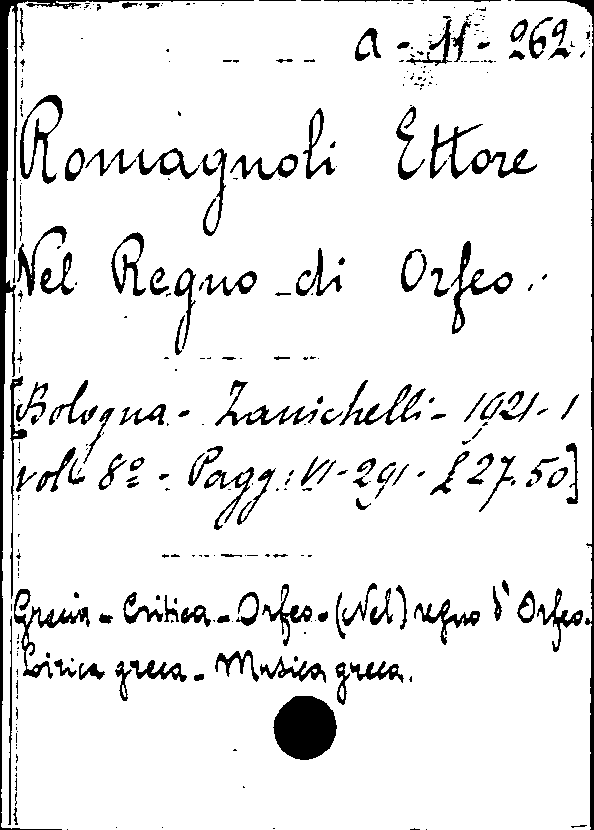 a - 11 - 262.
Romagnoli Ettore
Nel Regno di Orfeo.
[Bologna - Zanichelli - 1921 - 1
vol. 8º - Pagg: VI - 291 - £ 27.50]
Grecia - Critica - Orfeo - (Nel) regno d'Orfeo.
Lirica greca - Musica greca.